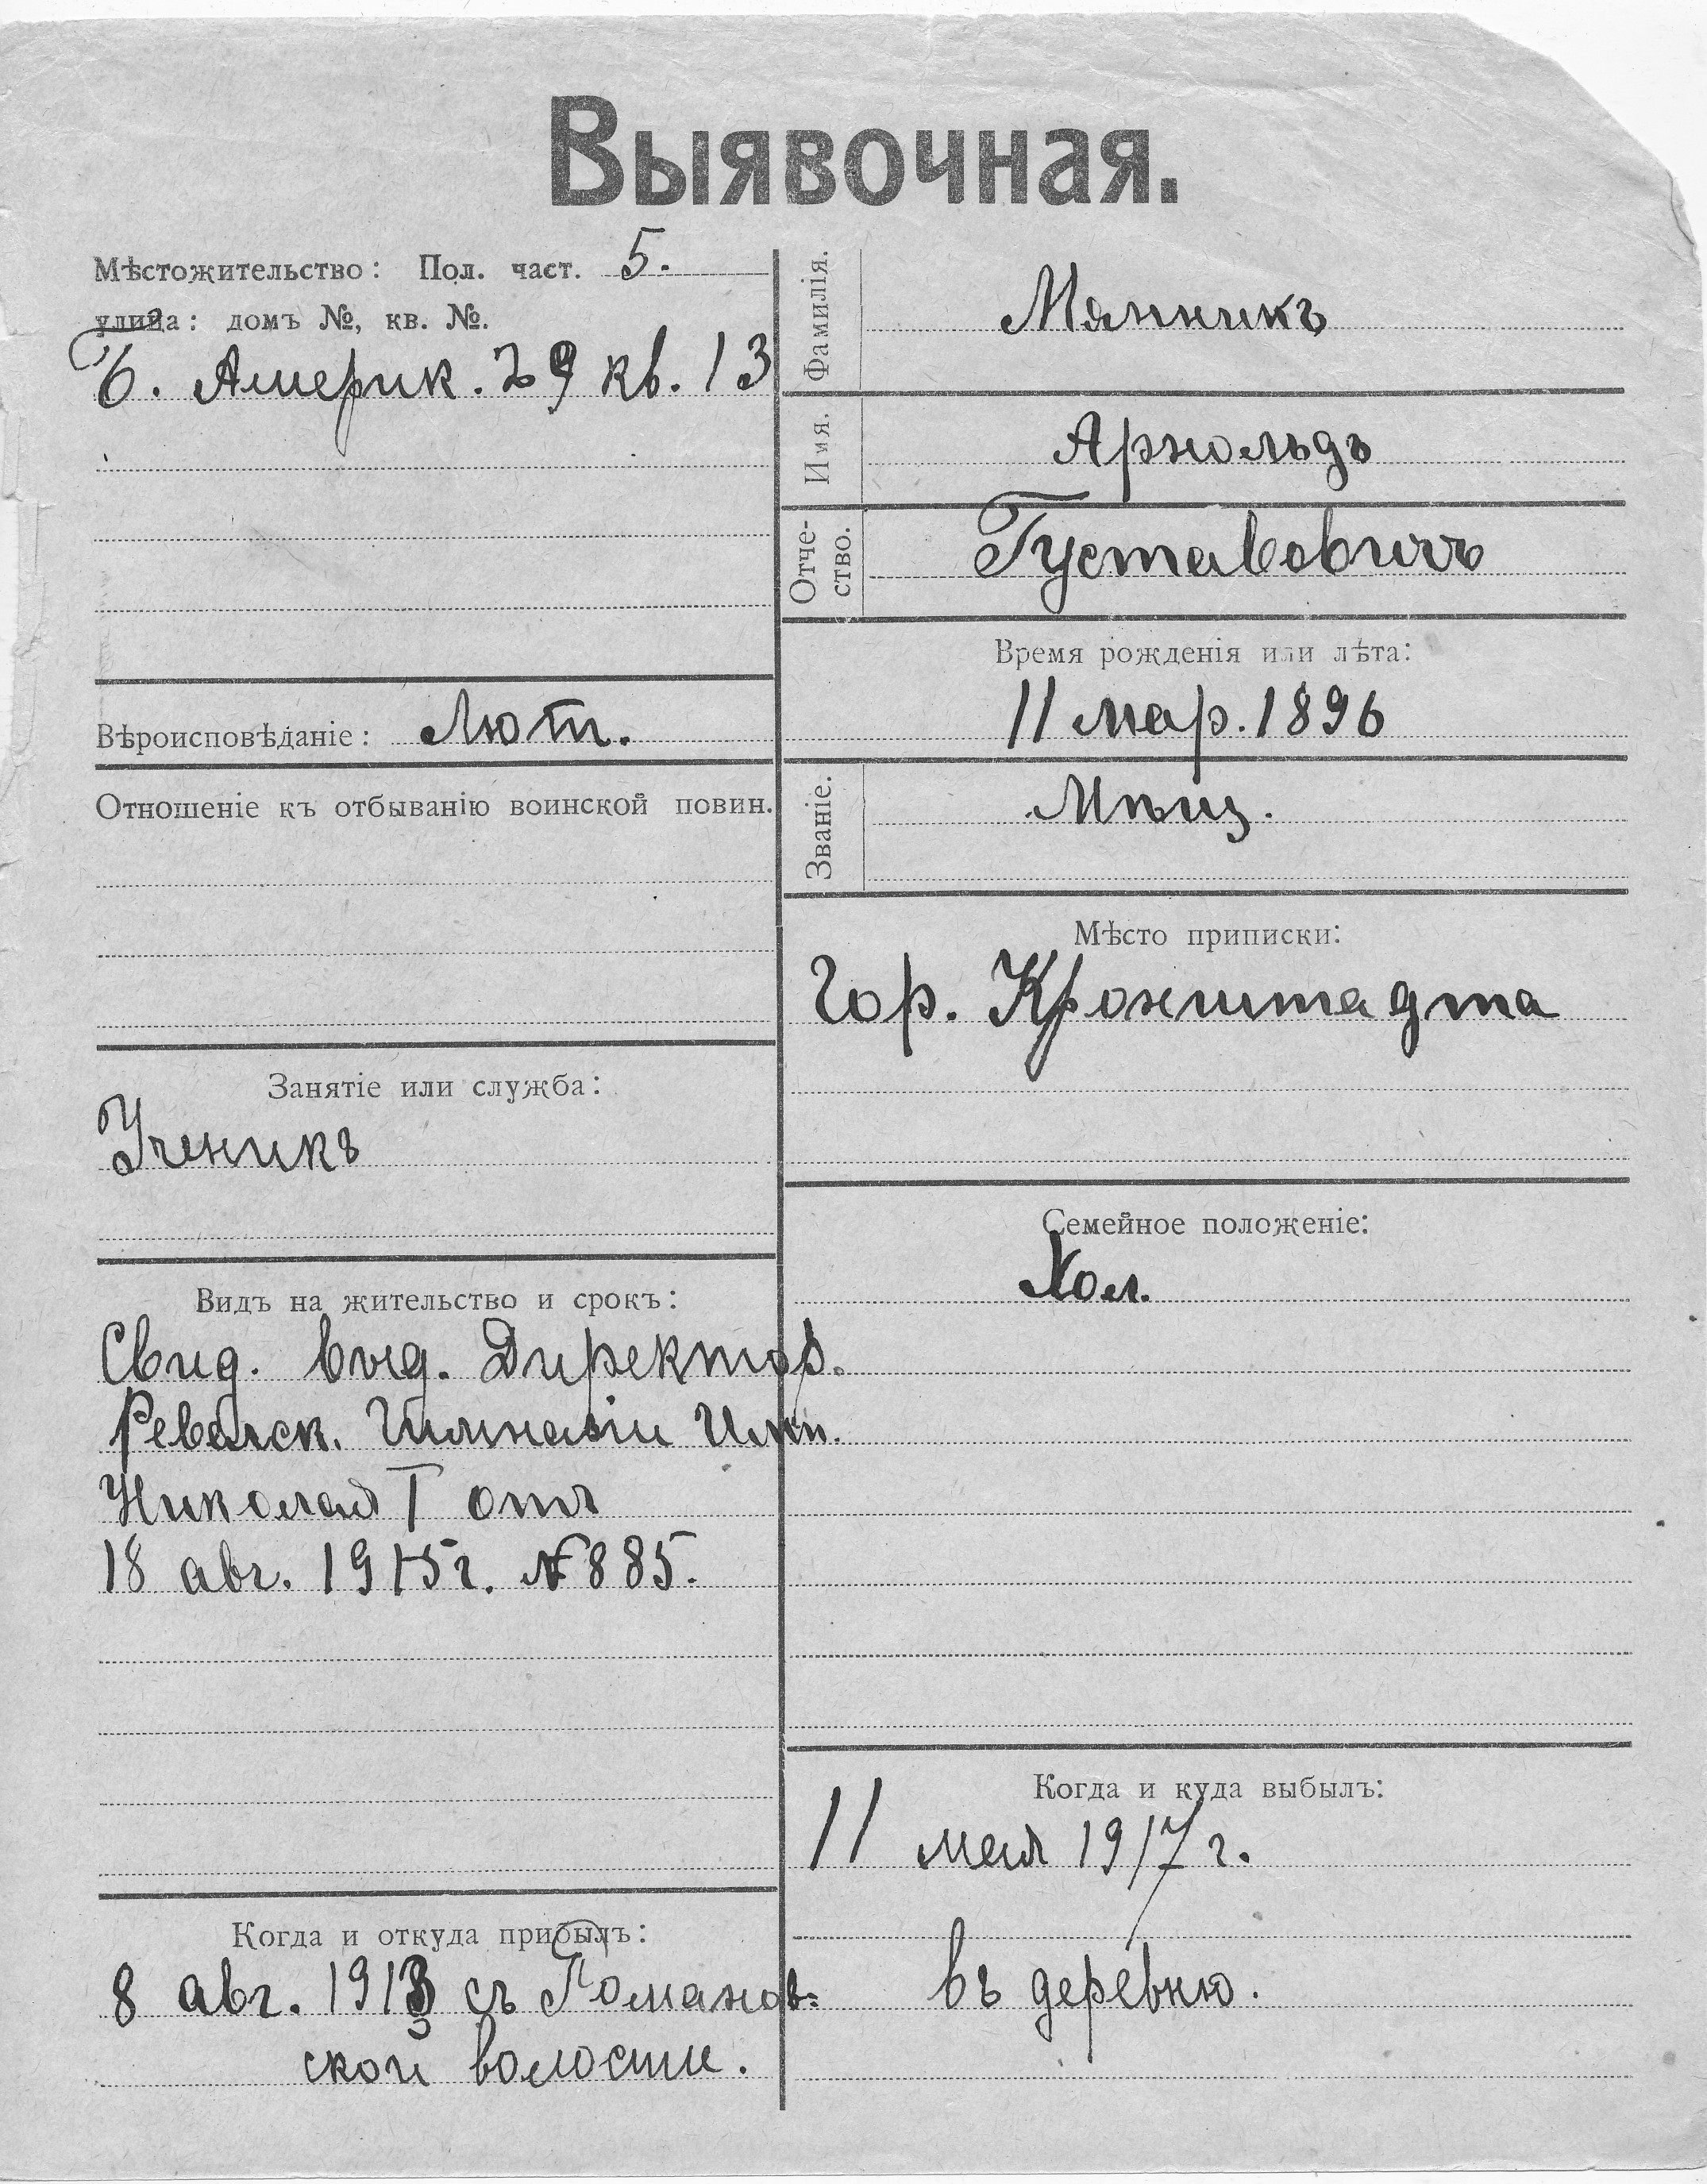 Выявочная.
Мѣстожительство: Пол. част. 5.
улица: домъ №, кв. №.
Б. Америк. 29 кв. 13
Вѣроисповѣданіе: Лют.
Отношеніе къ отбыванію воинской повин.
Занятіе или служба:
Ученикъ
Видъ на жительство и срокъ:
Свид. выд. Директор.
Ревельск. Гимназіи Имп.
Николая I отъ
18 авг. 1915 г. № 885.
Когда и откуда прибылъ:
8 авг. 1913 съ Романов-
ской волости.
Фамилія.
Мянникъ
Имя.
Арнольдъ
Отче-
ство.
Густавовичъ
Время рожденія или лѣта:
11 мар. 1896
Званіе.
Мѣщ.
Мѣсто приписки:
Гор. Кронштадта
Семейное положеніе:
Хол.
Когда и куда выбылъ:
11 мая 1917 г.
въ деревню.